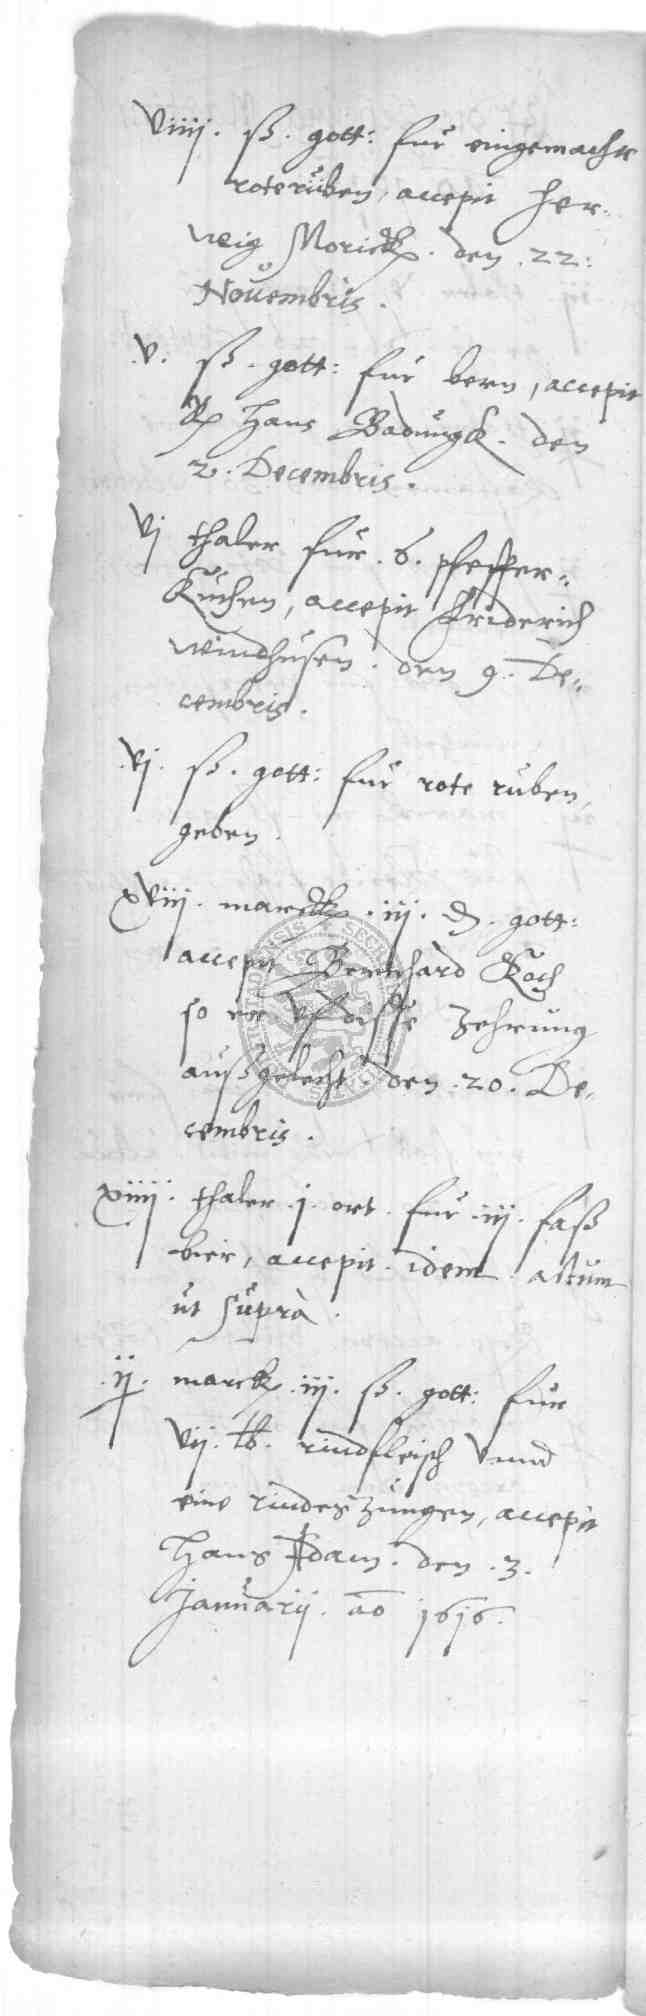 Viiij. ß. gott: für eingemachte
roterüben, accepit Her-
weig Morickh. den .22.
Novembris.
.v. ß. gott: für bern, accepit
Hans Badungk. den
2. Decembris.
Vj thaler für .6. pfeffer-
Kuchen, accepit Friderich
windhusen. den 9. De-
cembris.
.vj. ß. gott: für rote ruben,
geben.
xviij. marckh .iij. ₰. gott:
accepit Bernhard Koch
so er vf disse Zehrung
außgelecht. den .20. De-
cembris.
xiiij. thaler .j. ort. für .iij. faß
bier, accepit. idem. actum
ut supra.
.ij. marck .iij. ß. gott: für
Vij. lb. rindfleisch Vnnd
eine rindeszungen, accepit
Hans Adam. den .3.
Januarij. ao 1616.
SECRE